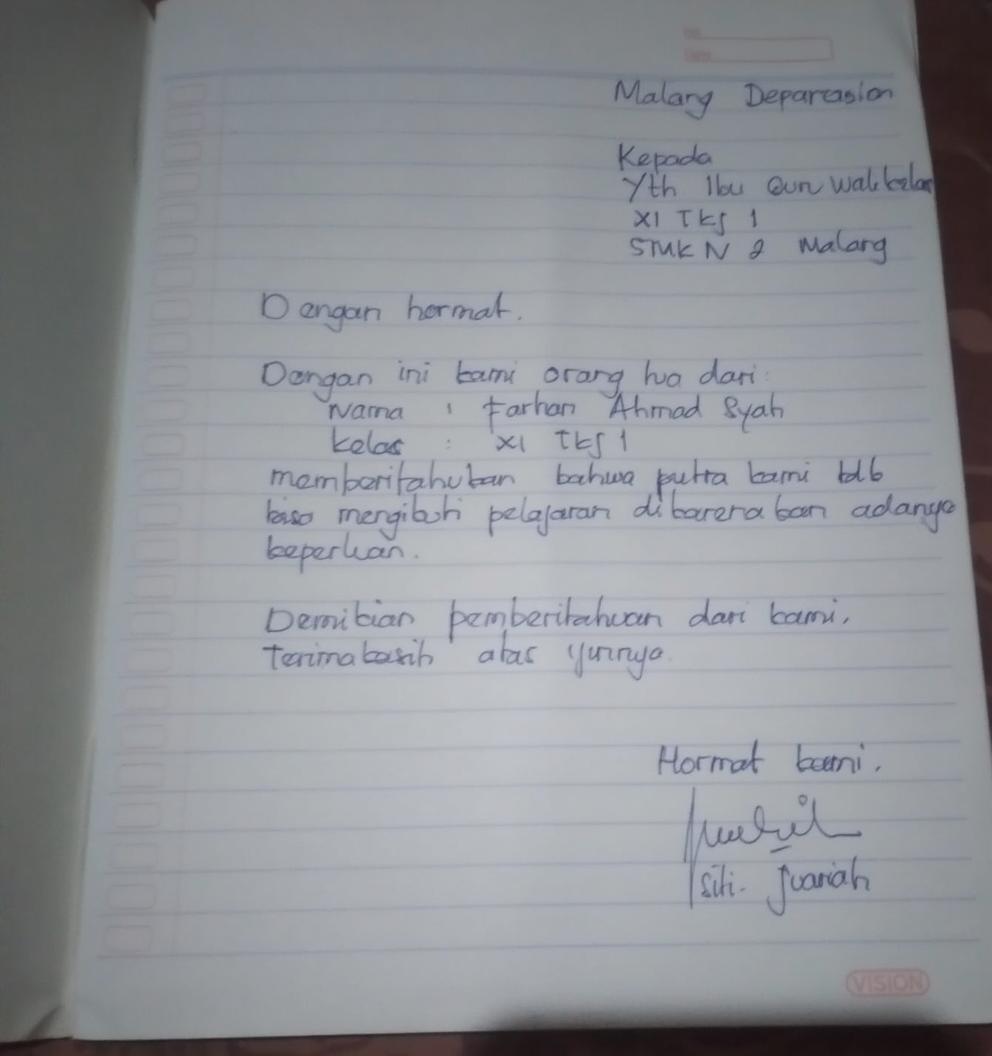 Malang Deparcasion
Kepada
Yth Ibu Qun wali kelas
XI TKJ 1
SMK N 2 Malang
Dengan hormat.
Dengan ini kami orang tua dari:
Nama : Farhan Ahmad Syah
Kelas : XI TKJ 1
memberitahukan bahwa putra kami tdk
bisa mengikuti pelajaran dikarenakan adanya
keperluan.
Demikian pemberitahuan dari kami,
Terimakasih atas
Hormat kami.
Siti. Juariah
VISION